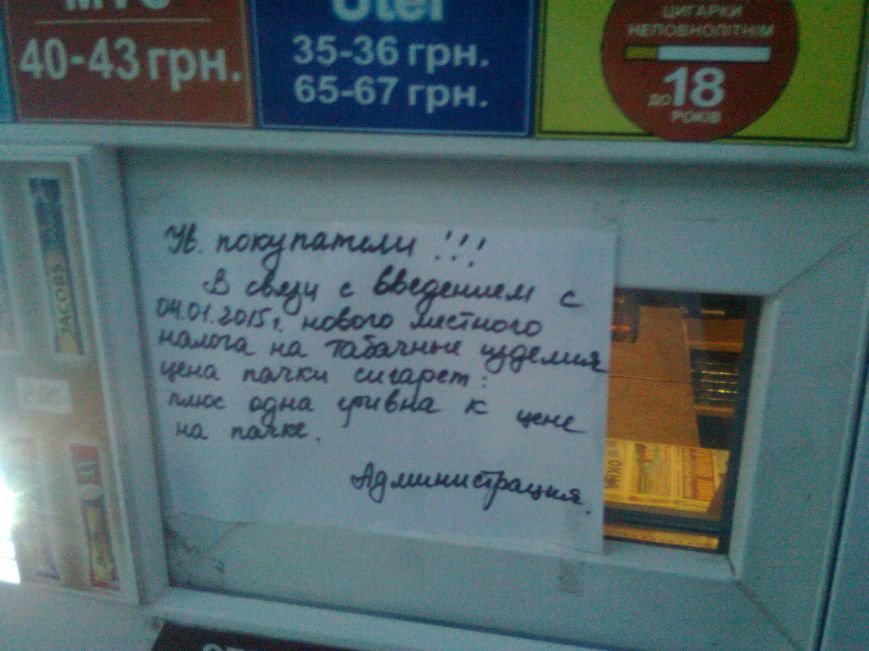 МТС
40-43 грн.
Utel
35-36 грн.
65-67 грн.
ЦИГАРКИ
НЕПОВНОЛІТНІМ
ДО 18
РОКІВ
JACOBS
Ув. покупатели !!!
В связи с введением с
04.01.2015г. нового местного
налога на табачные изделия
цена пачки сигарет:
плюс одна гривна к цене
на пачке.
Администрация.